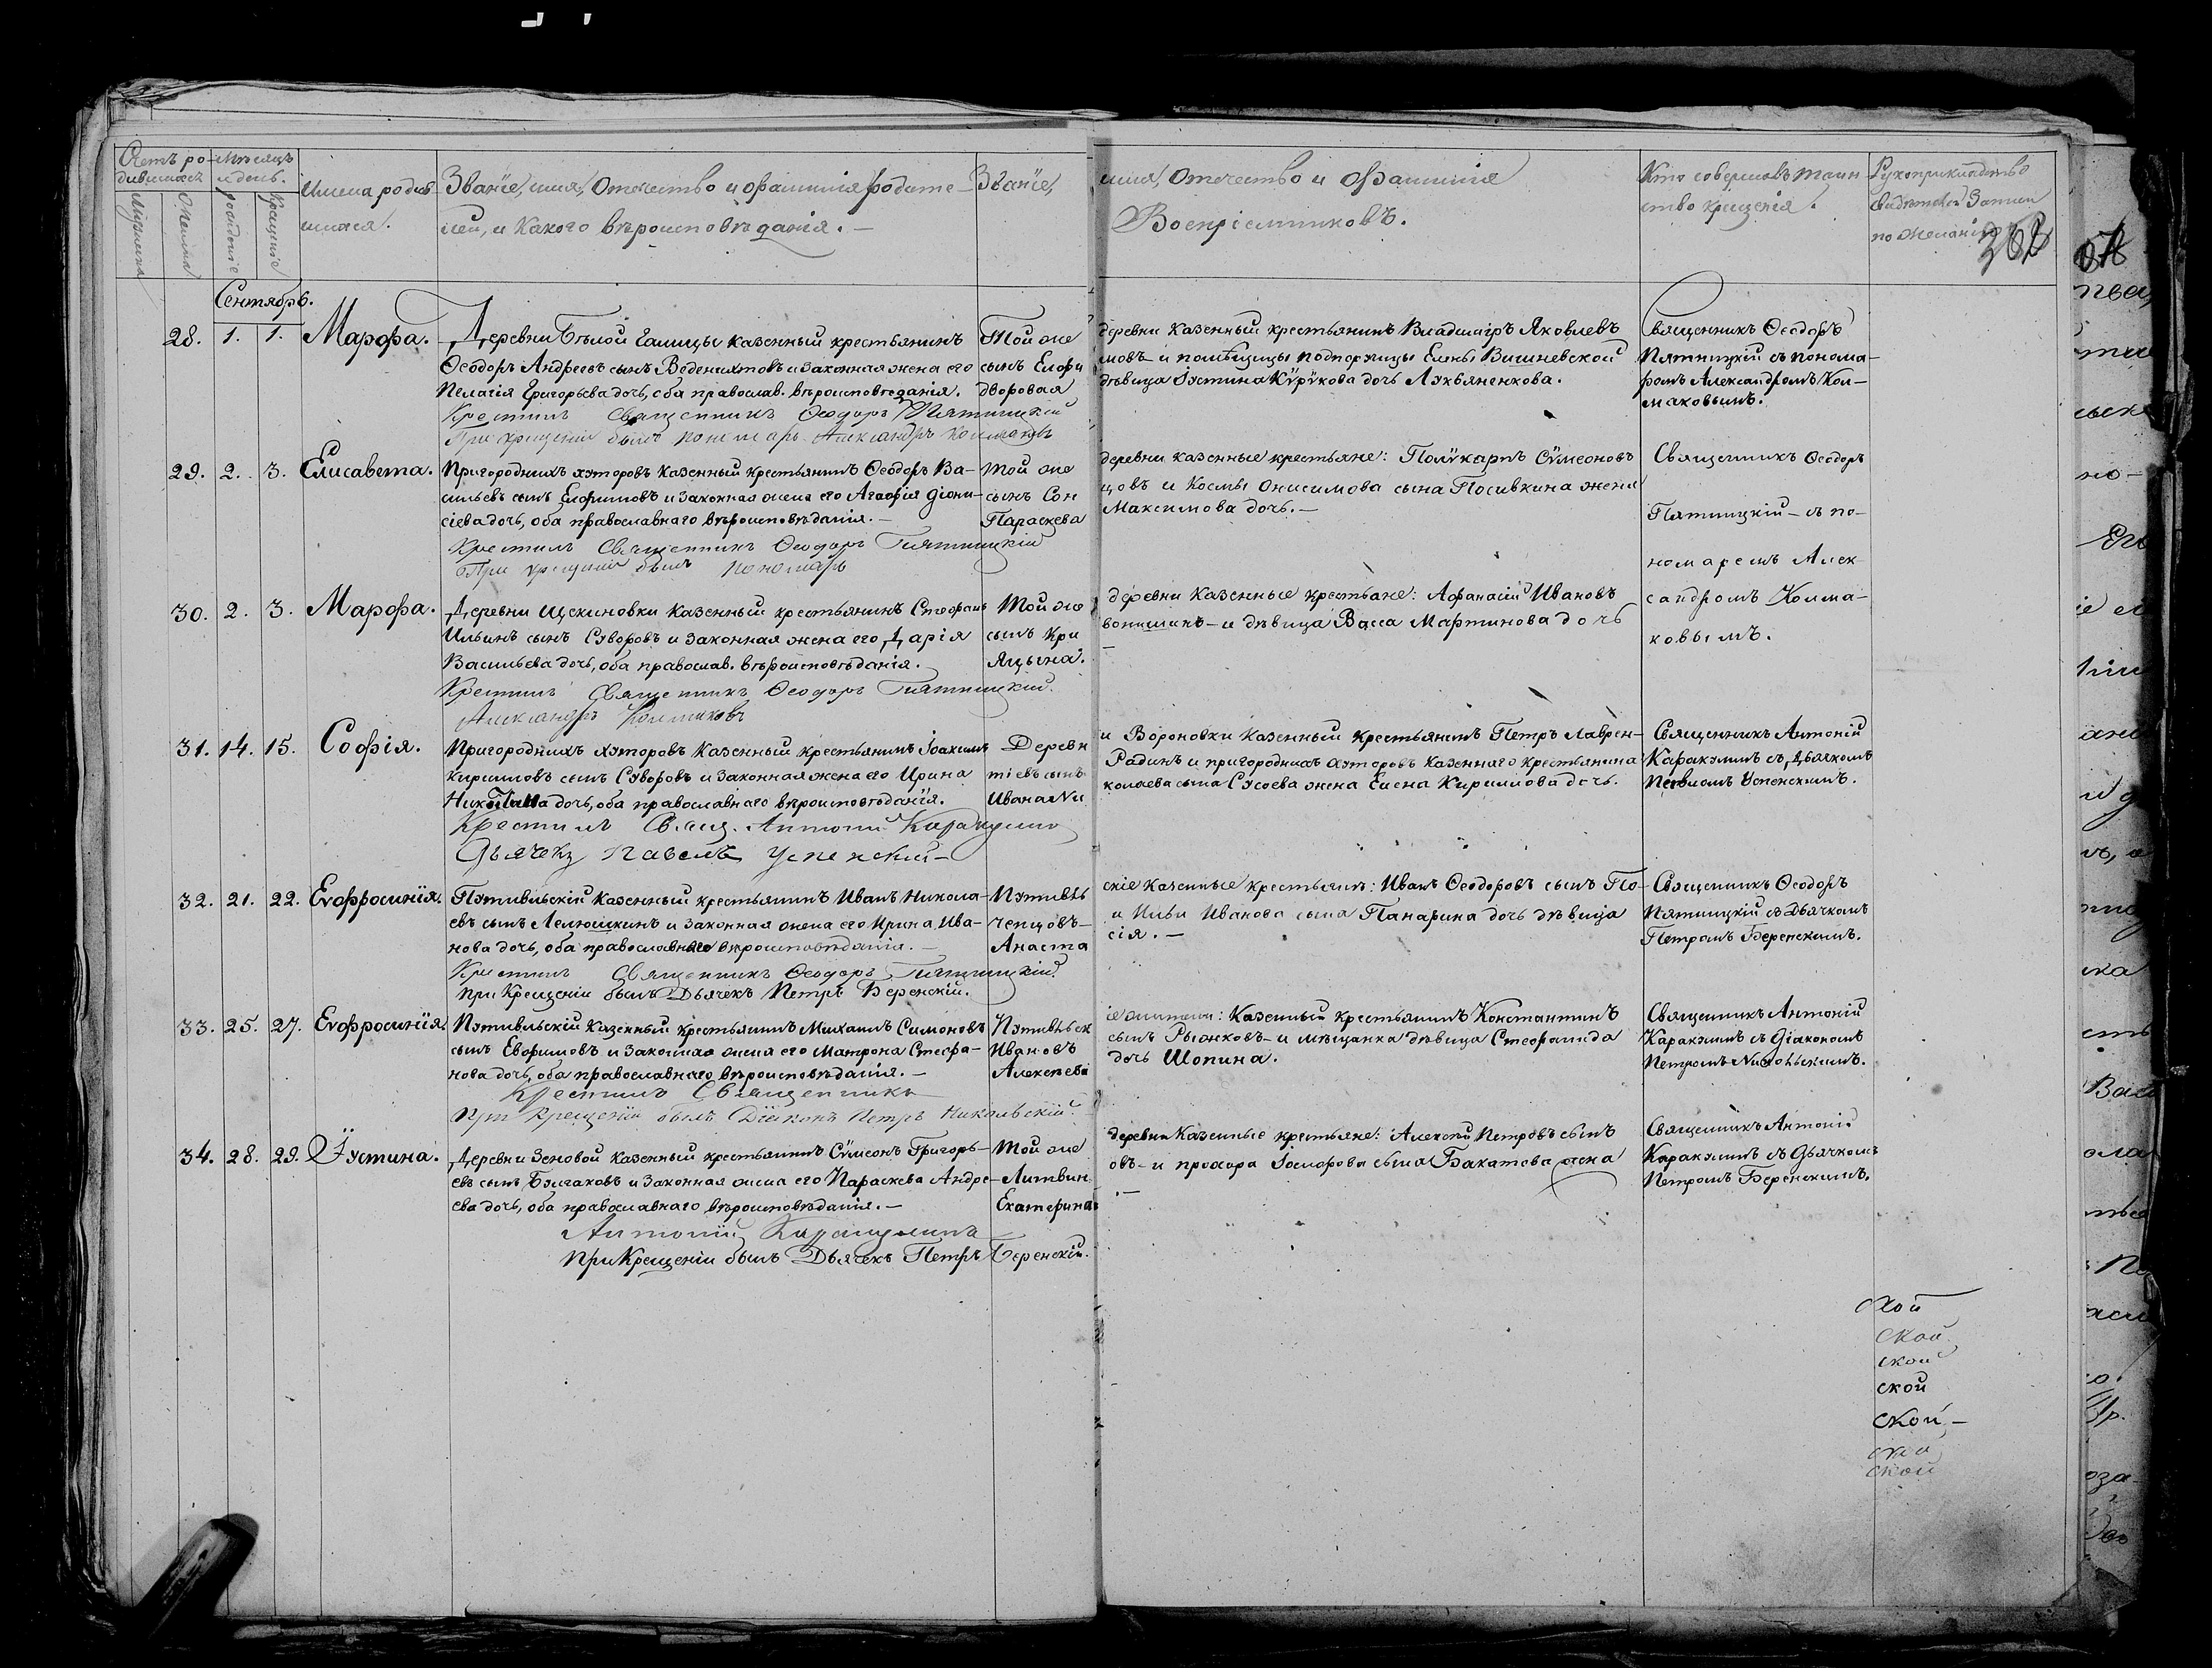 Счетъ ро-
дившихся
Мѣсяцъ
и день.
Мужеска
Женска
рожденіе
Крещеніе
Имена родив-
шихся.
Званїе, имя, Отечество и фамилія родите-
лей, и какого вѣроисповѣданія. —
Званїе,
имя, Отечество и Фамилія
Воспріемниковъ.
Кто совершалъ таин
ство крещенія.
Рукоприкладство
свидѣтелей Записи
по желанію
Сентябрь.
28. 1. 1. Марѳа.
Деревни Бѣлой Галицы казенный крестьянинъ
Ѳеодоръ Андреевъ сынъ Веденихтовъ и законная жена его
Пелагія Григорьева дочь, оба православ. вѣроисповѣданія.
Крестилъ Священникъ Ѳеодоръ Пятницкій
При крещеніи былъ пономарь Александръ Колмаковъ
Той же
сынъ Елфи
дворовая
деревни казенный крестьянинъ Владиміръ Яковлевъ
мовъ — и помѣщицы подпоручицы Елены Вишневской
дѣвица Іустина Кирикова дочь Лукьяненкова.
Священникъ Ѳеодоръ
Пятницкій съ понома-
ремъ Александромъ Кол-
маковымъ.
29. 2. 3. Елисавета.
Пригородныхъ хуторовъ казенный крестьянинъ Ѳеодоръ Ва-
сильевъ сынъ Елфимовъ и законная жена его Агафія Діони-
сіева дочь, оба православнаго вѣроисповѣданія. —
Крестилъ Священникъ Ѳеодоръ Пятницкій
При крещеніи былъ пономарь
Той же
сынъ Сон
Параскева
деревни казенные крестьяне: Поликарпъ Сѵмеоновъ
цовъ и Космы Онисимова сына Посивкина жена
Максимова дочь. —
Священникъ Ѳеодоръ
Пятницкій — съ по-
номаремъ Алек-
сандромъ Колма-
ковымъ.
30. 2. 3. Марѳа.
Деревни Щекиновки казенный крестьянинъ Стефанъ
Ильинъ сынъ Суворовъ и законная жена его Дарія
Васильева дочь, оба православ. вѣроисповѣданія.
Крестилъ Священникъ Ѳеодоръ Пятницкій.
Александръ Колмаковъ
Той же
сынъ Кри
Яцына.
деревни казенные крестьяне: Афанасій Ивановъ
вошишинъ — и дѣвица Васса Мартинова дочь
31. 14. 15. Софія.
Пригородныхъ хуторовъ казенный крестьянинъ Іоакимъ
Кириловъ сынъ Суворовъ и законная жена его Ирина
дочь, оба православнаго вѣроисповѣданїя.
Крестилъ Свящ. Антоній Каракулинъ
Дьячекъ Павелъ Успенскій —
Деревн
тіевъ сынъ
Ивана Ни
и Вороновки казенный крестьянинъ Петръ Лаврен-
Радинъ и пригородныхъ хуторовъ казеннаго крестьянина
колаева сына Сусоева жена Елена Кирилова дочь.
Священникъ Антоній
Каракулинъ съ Дьячкомъ
Павломъ Успенскимъ.
32. 21. 22. Еѵфросинїя.
Путивльскій казенный крестьянинъ Иванъ Никола-
евъ сынъ Лелюшкинъ и законная жена его Ирина Ива-
нова дочь, оба православнаго вѣроисповѣданія. —
Крестилъ Священникъ Ѳеодоръ Пятницкій.
при Крещеніи былъ Дьячекъ Петръ Беренскій.
Путивль
чепцовъ —
Анаста
скіе казенные крестьяне: Иванъ Ѳеодоровъ сынъ По-
и Ильи Иванова сына Панарина дочь дѣвица
сія. —
Священникъ Ѳеодоръ
Пятницкій съ Дьячкомъ
Петромъ Беренскимъ.
33. 25. 27. Еѵфросинїя.
Путивльскій казенный крестьянинъ Михаилъ Симоновъ
сынъ Евфимовъ и законная жена его Матрона Стефа-
нова дочь, оба православнаго вѣроисповѣданія. —
Крестилъ Священникъ
при крещеніи былъ Діяконъ Петръ Никольскій.
Путивльск
Ивановъ
Алексѣева
іе жители: казенный крестьянинъ Константинъ
сынъ Рыжковъ — и мѣщанка дѣвица Стефанида
дочь Шопина.
Священникъ Антоній
Каракулинъ съ Діакономъ
Петромъ Никольскимъ.
34. 28. 29. Іустина.
Деревни Зеновой казенный крестьянинъ Сѵмеонъ Григорь-
евъ сынъ Булгаковъ и законная жена его Параскева Андре-
ева дочь, оба православнаго вѣроисповѣданія. —
Антоній Каракулинъ
при Крещеніи былъ Дьячекъ Петръ Беренскій.
Той же
Литвин
Екатерина
деревни казенные крестьяне: Алексѣй Петровъ сынъ
овъ — и прохора Іосифова сына Бакатова жена
Священникъ Антоній
Каракулинъ съ Дьячкомъ
Петромъ Беренскимъ.
ской
ской
ской
ской
ской —
ской